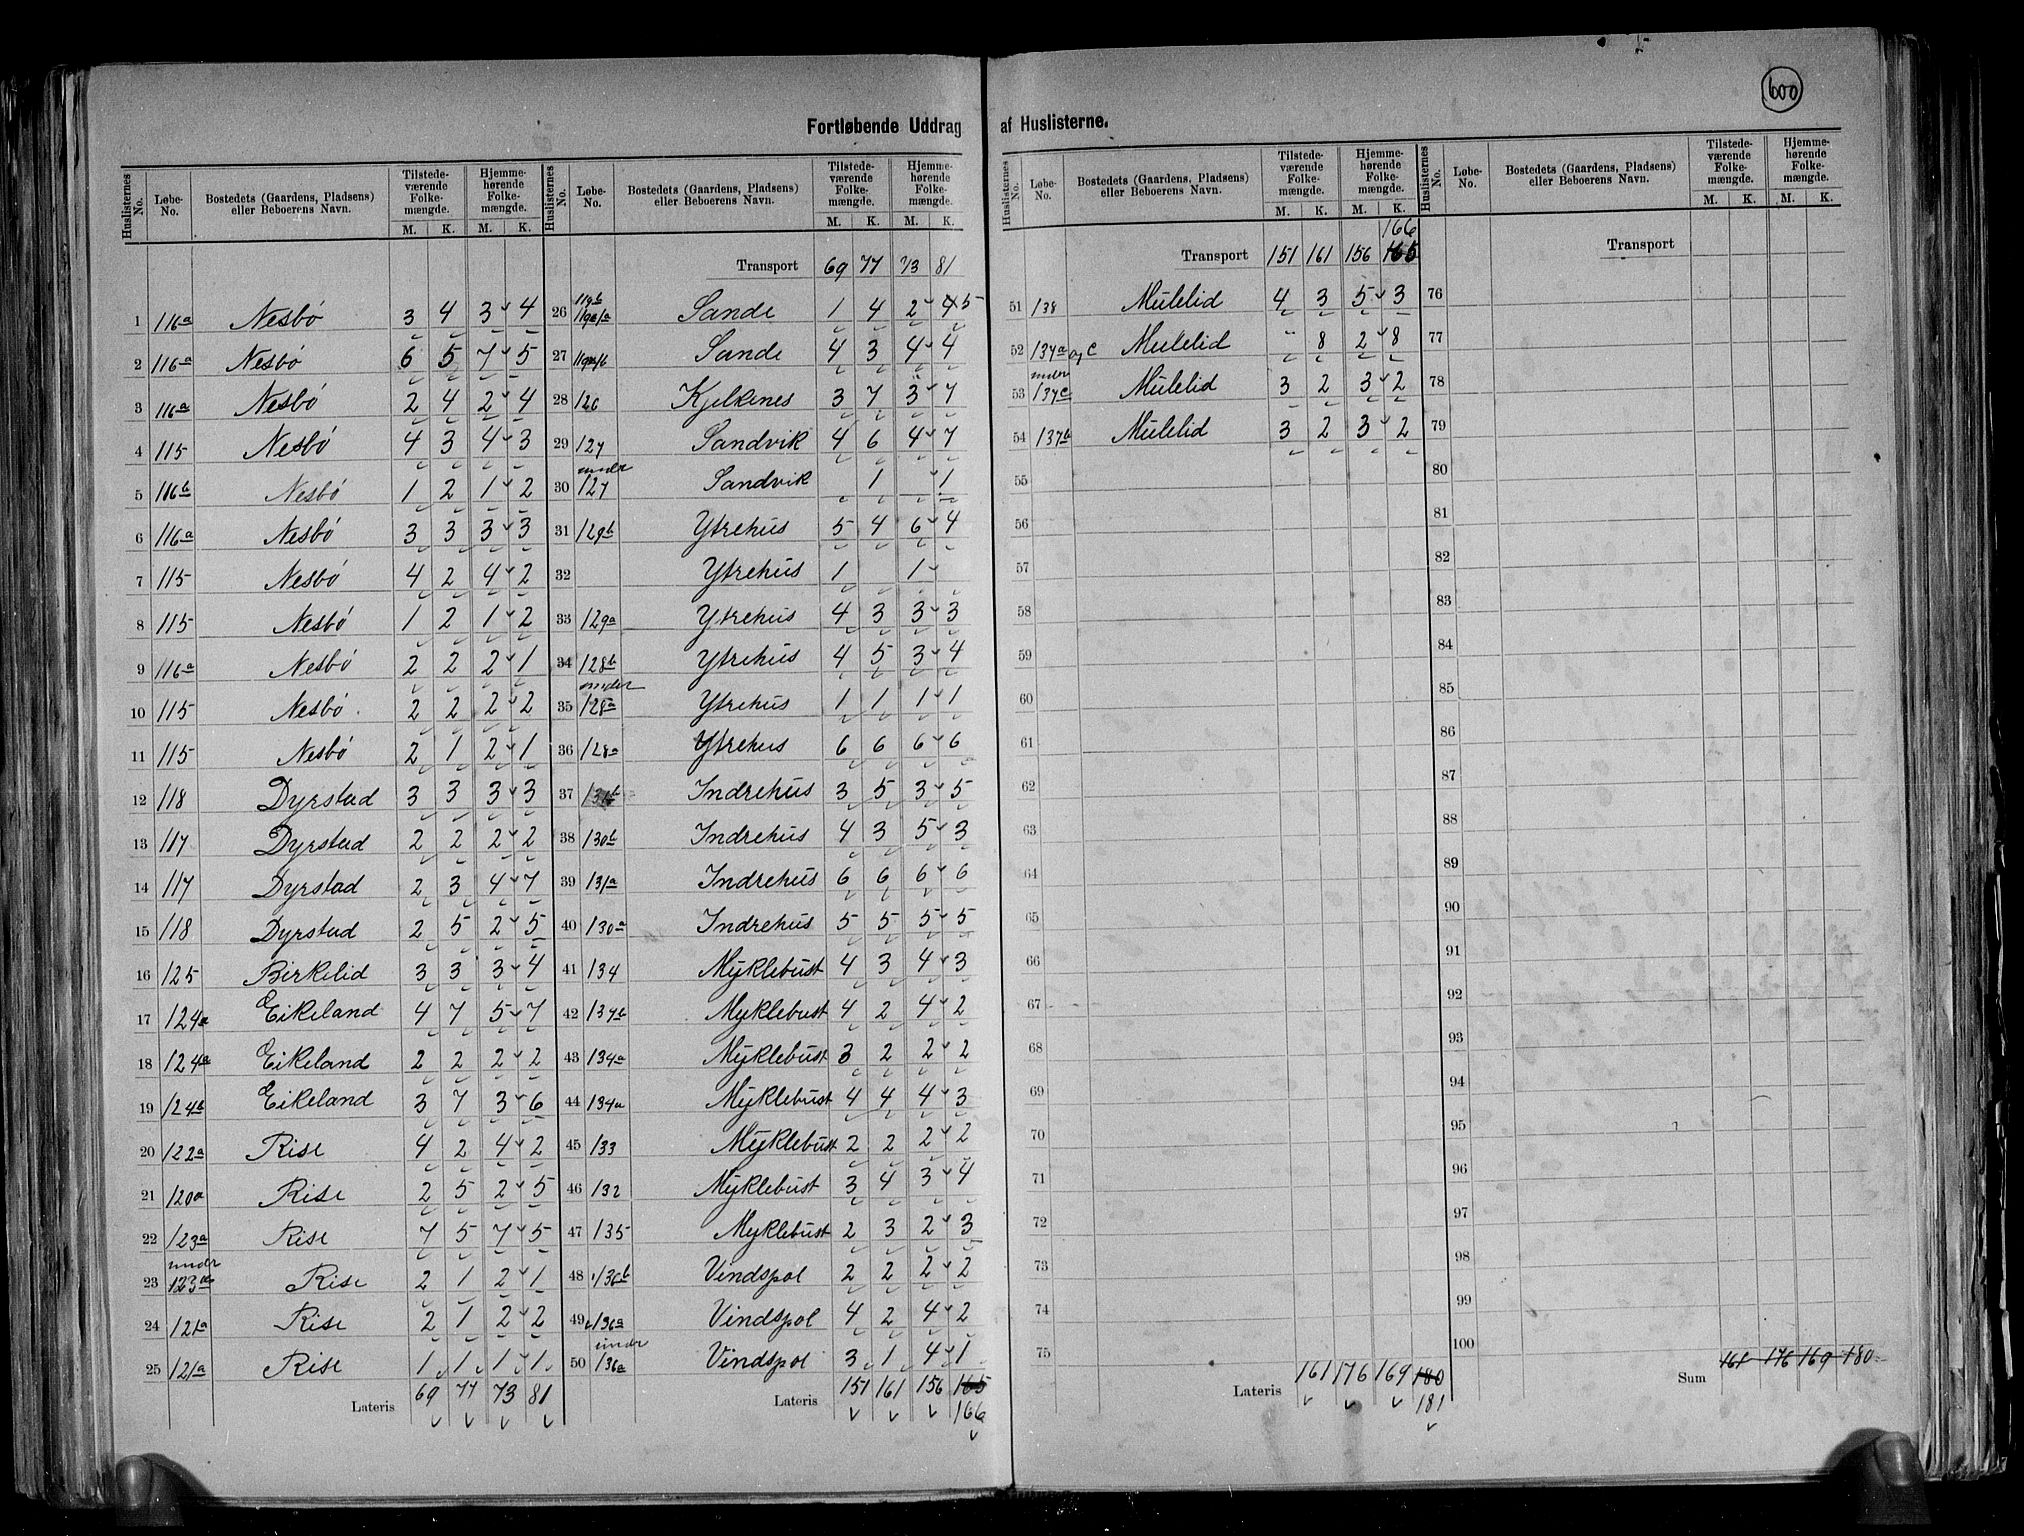 600
Fortløbende Uddrag af Huslisterne.
Huslisternes No. | Løbe-No. | Bostedets (Gaardens, Pladsens) eller Beboerens Navn. | Tilstedeværende Folkemængde. M. K. | Hjemmehørende Folkemængde. M. K.
1 116a Nesbø 3 4 3 4
2 116a Nesbø 6 5 7 5
3 116a Nesbø 2 4 2 4
4 115 Nesbø 4 3 4 3
5 116b Nesbø 1 2 1 2
6 116a Nesbø 3 3 3 3
7 115 Nesbø 4 2 4 2
8 115 Nesbø 1 2 1 2
9 116a Nesbø 2 2 2 1
10 115 Nesbø 2 2 2 2
11 115 Nesbø 2 1 2 1
12 118 Dyrstad 3 3 3 3
13 117 Dyrstad 2 2 2 2
14 117 Dyrstad 2 3 4 7
15 118 Dyrstad 2 5 2 5
16 125 Birkelid 3 3 3 4
17 124a Eikeland 4 7 5 7
18 124a Eikeland 2 2 2 2
19 124b Eikeland 3 7 3 6
20 122a Rise 4 2 4 2
21 120a Rise 2 5 2 5
22 123a Rise 7 5 7 5
23 under 123a Rise 2 1 2 1
24 121a Rise 2 1 2 2
25 121a Rise 1 1 1 1
Lateris 69 77 73 81
Huslisternes No. | Løbe-No. | Bostedets (Gaardens, Pladsens) eller Beboerens Navn. | Tilstedeværende Folkemængde. M. K. | Hjemmehørende Folkemængde. M. K.
Transport 69 77 73 81
26 119b Sande 1 4 2 4 5
27 Sande 4 3 4 4
28 126 Kjelkenes 3 7 3 7
29 127 Sandvik 4 6 4 7
30 under 127 Sandvik 1 1
31 129b Ytrehus 5 4 6 4
32 Ytrehus 1 1
33 129a Ytrehus 4 3 3 3
34 128b Ytrehus 4 5 3 4
35 under 128a Ytrehus 1 1 1 1
36 128a Ytrehus 6 6 6 6
37 131b Indrehus 3 5 3 5
38 130b Indrehus 4 3 5 3
39 131a Indrehus 6 6 6 6
40 130a Indrehus 5 5 5 5
41 134 Myklebust 4 3 4 3
42 134b Myklebust 4 2 4 2
43 134a Myklebust 3 2 2 2
44 134a Myklebust 4 4 4 3
45 133 Myklebust 2 2 2 2
46 132 Myklebust 3 4 3 4
47 135 Myklebust 2 3 2 3
48 136b Vindspol 2 2 2 2
49 136a Vindspol 4 2 4 2
50 under 136a Vindspol 3 1 4 1
Lateris 151 161 156 165
166
Huslisternes No. | Løbe-No. | Bostedets (Gaardens, Pladsens) eller Beboerens Navn. | Tilstedeværende Folkemængde. M. K. | Hjemmehørende Folkemængde. M. K.
166
Transport 151 161 156 165
51 138 Mulelid 4 3 5 3
52 137a og c Mulelid " 8 2 8
53 under 137c Mulelid 3 2 3 2
54 137b Mulelid 3 2 3 2
55
56
57
58
59
60
61
62
63
64
65
66
67
68
69
70
71
72
73
74
75
Lateris 161 176 169 180
181
Huslisternes No. | Løbe-No. | Bostedets (Gaardens, Pladsens) eller Beboerens Navn. | Tilstedeværende Folkemængde. M. K. | Hjemmehørende Folkemængde. M. K.
Transport
76
77
78
79
80
81
82
83
84
85
86
87
88
89
90
91
92
93
94
95
96
97
98
99
100
Sum 161 176 169 180